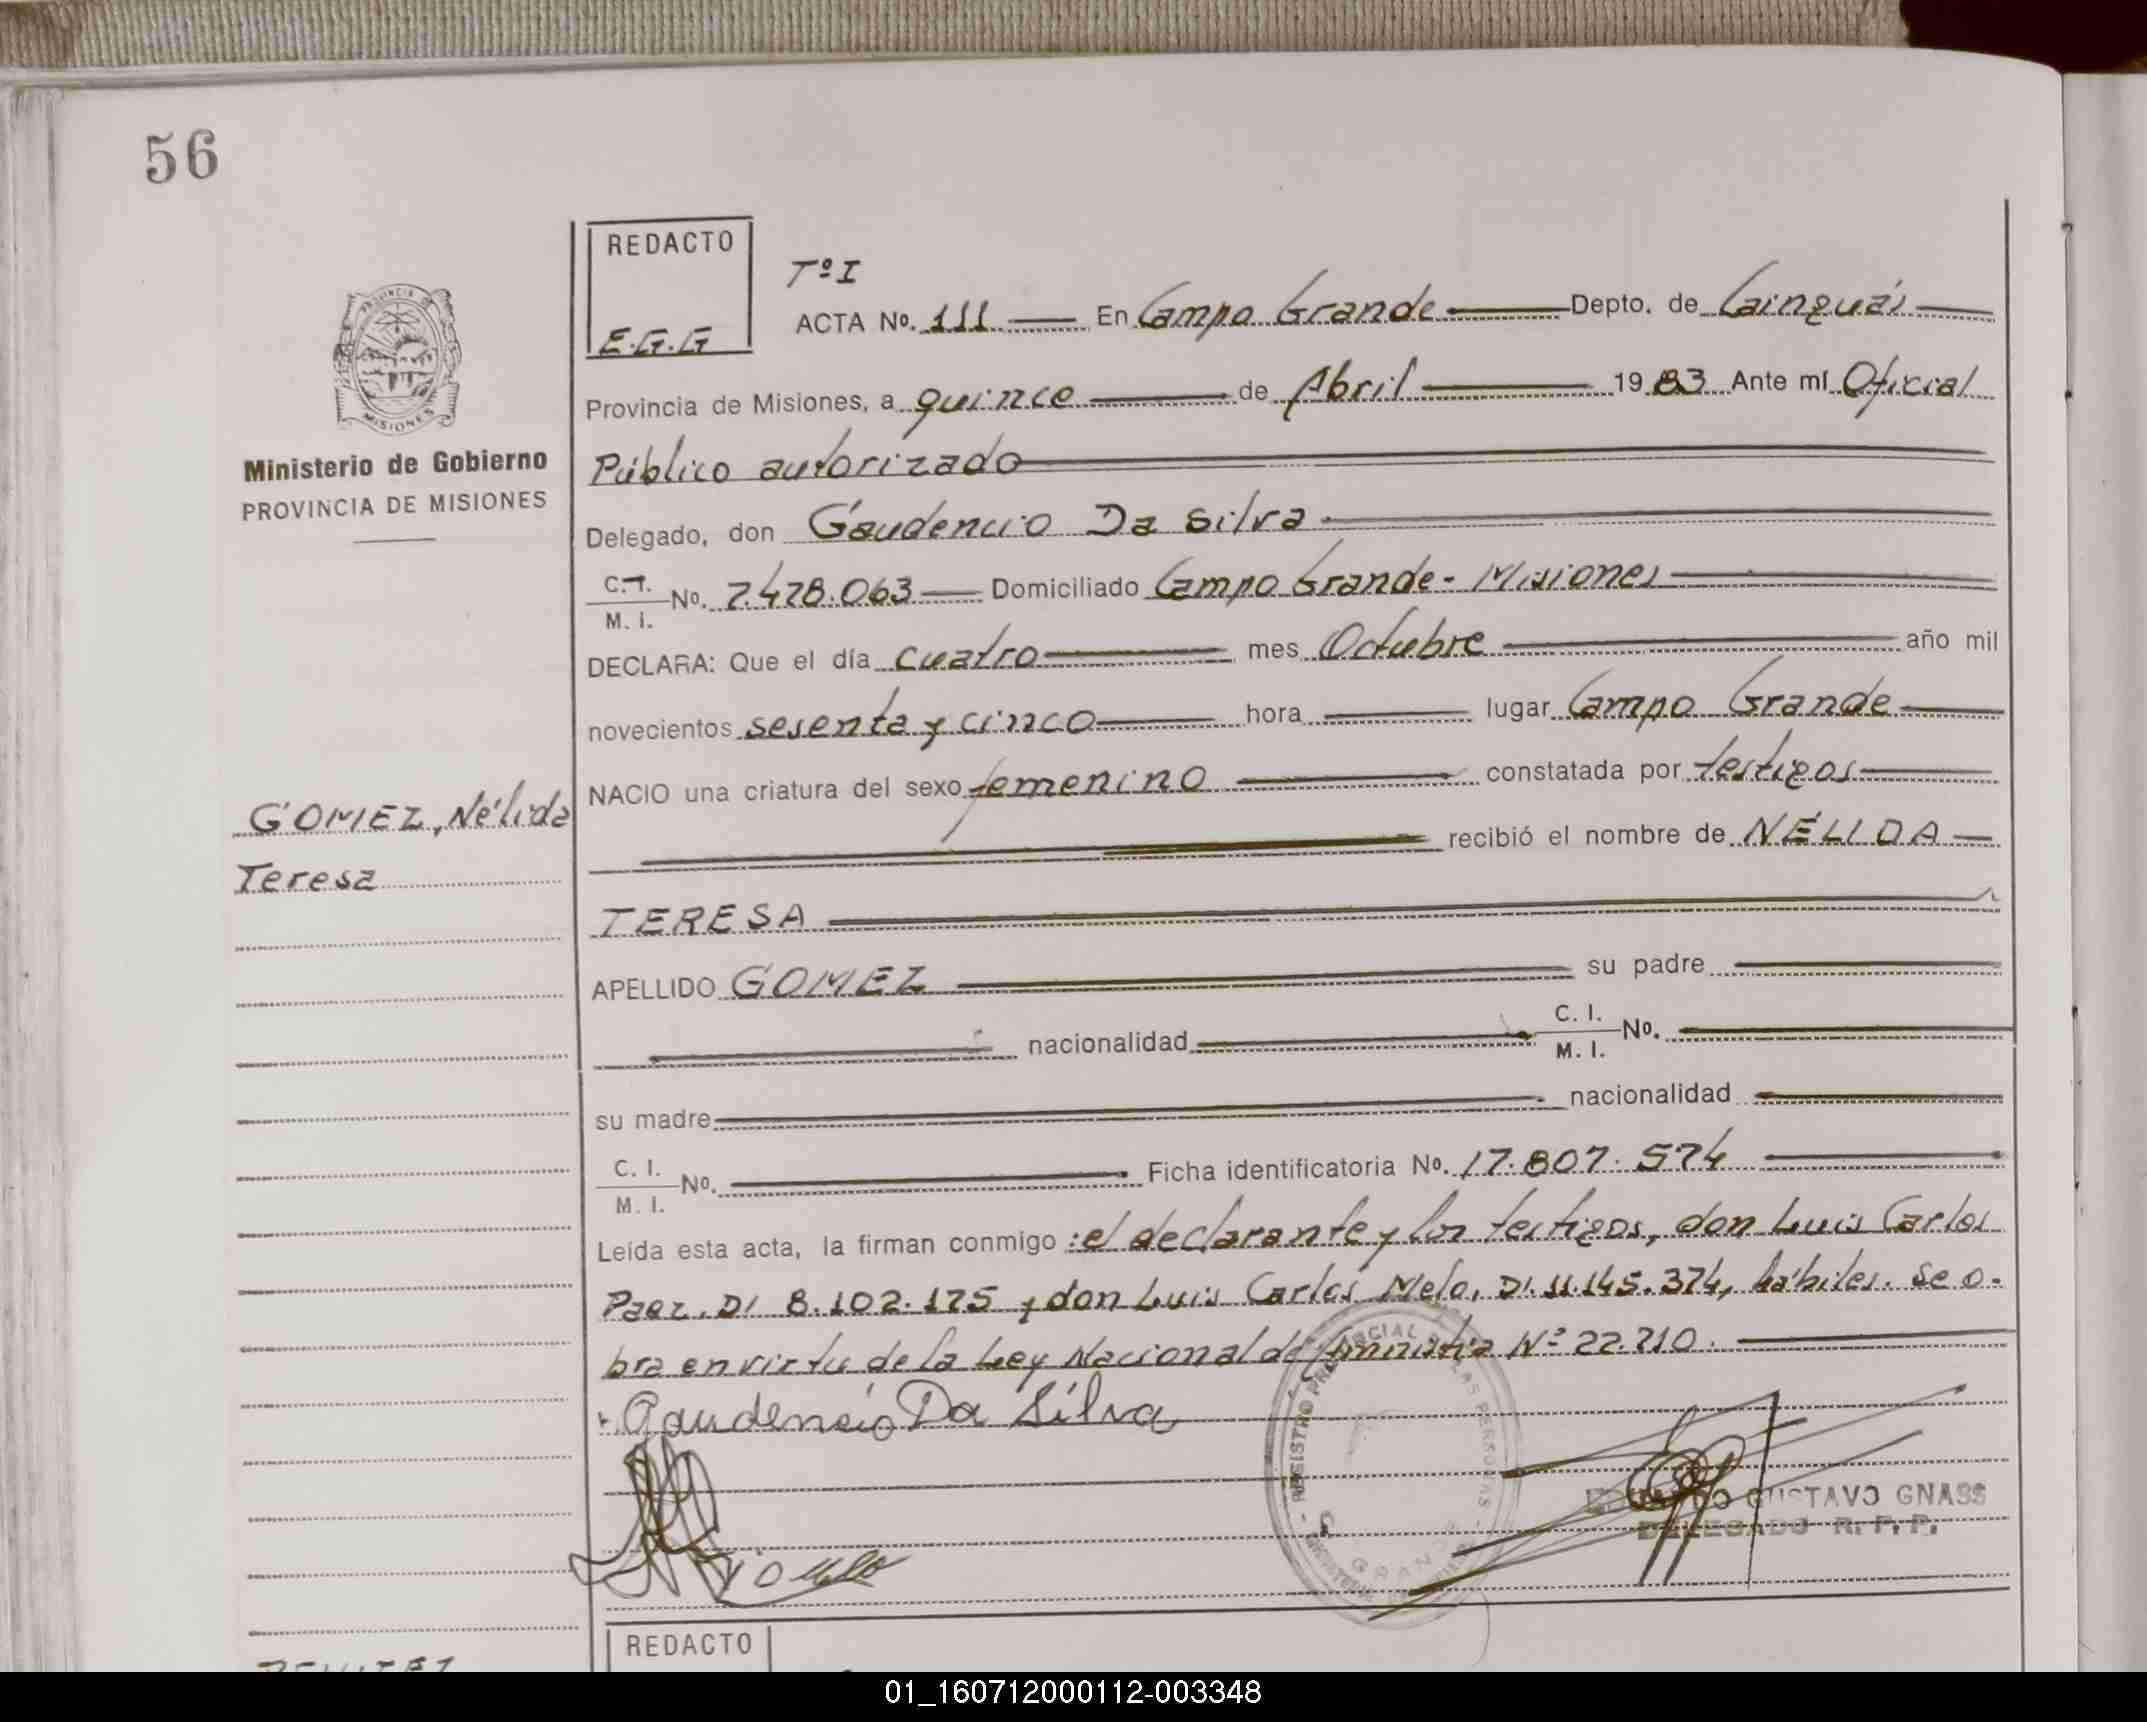 56
REDACTO
E.G.G
Tº I
ACTA No. 111 En Campo Grande Depto. de Cainguás
Provincia de Misiones, a quince de Abril 1983 Ante mí Oficial
Público autorizado
Ministerio de Gobierno
PROVINCIA DE MISIONES
Delegado, don Gaudencio Da Silva
C.I. M. I. No. 7.478.063 Domiciliado Campo Grande - Misiones
DECLARA: Que el día cuatro mes Octubre año mil
novecientos sesenta y cinco hora lugar Campo Grande
NACIO una criatura del sexo femenino constatada por testigos
GOMEZ, Nélida
Teresa
recibió el nombre de NÉLIDA
TERESA
APELLIDO GOMEZ su padre
nacionalidad C. I. M. I. No.
su madre nacionalidad
C. I. M. I. No. Ficha identificatoria No. 17.807.574
Leída esta acta, la firman conmigo : el declarante y los testigos, don Luis Carlos
Paez, DI 8.102.175 y don Luis Carlos Melo, DI. 11.145.374, hábiles. Se o-
bra en virtu de la Ley Nacional de Amnistia Nº 22.710.
Gaudencio Da Silva
GUSTAVO GNASS
DELEGADO R. P. P.
REDACTO
01_160712000112-003348